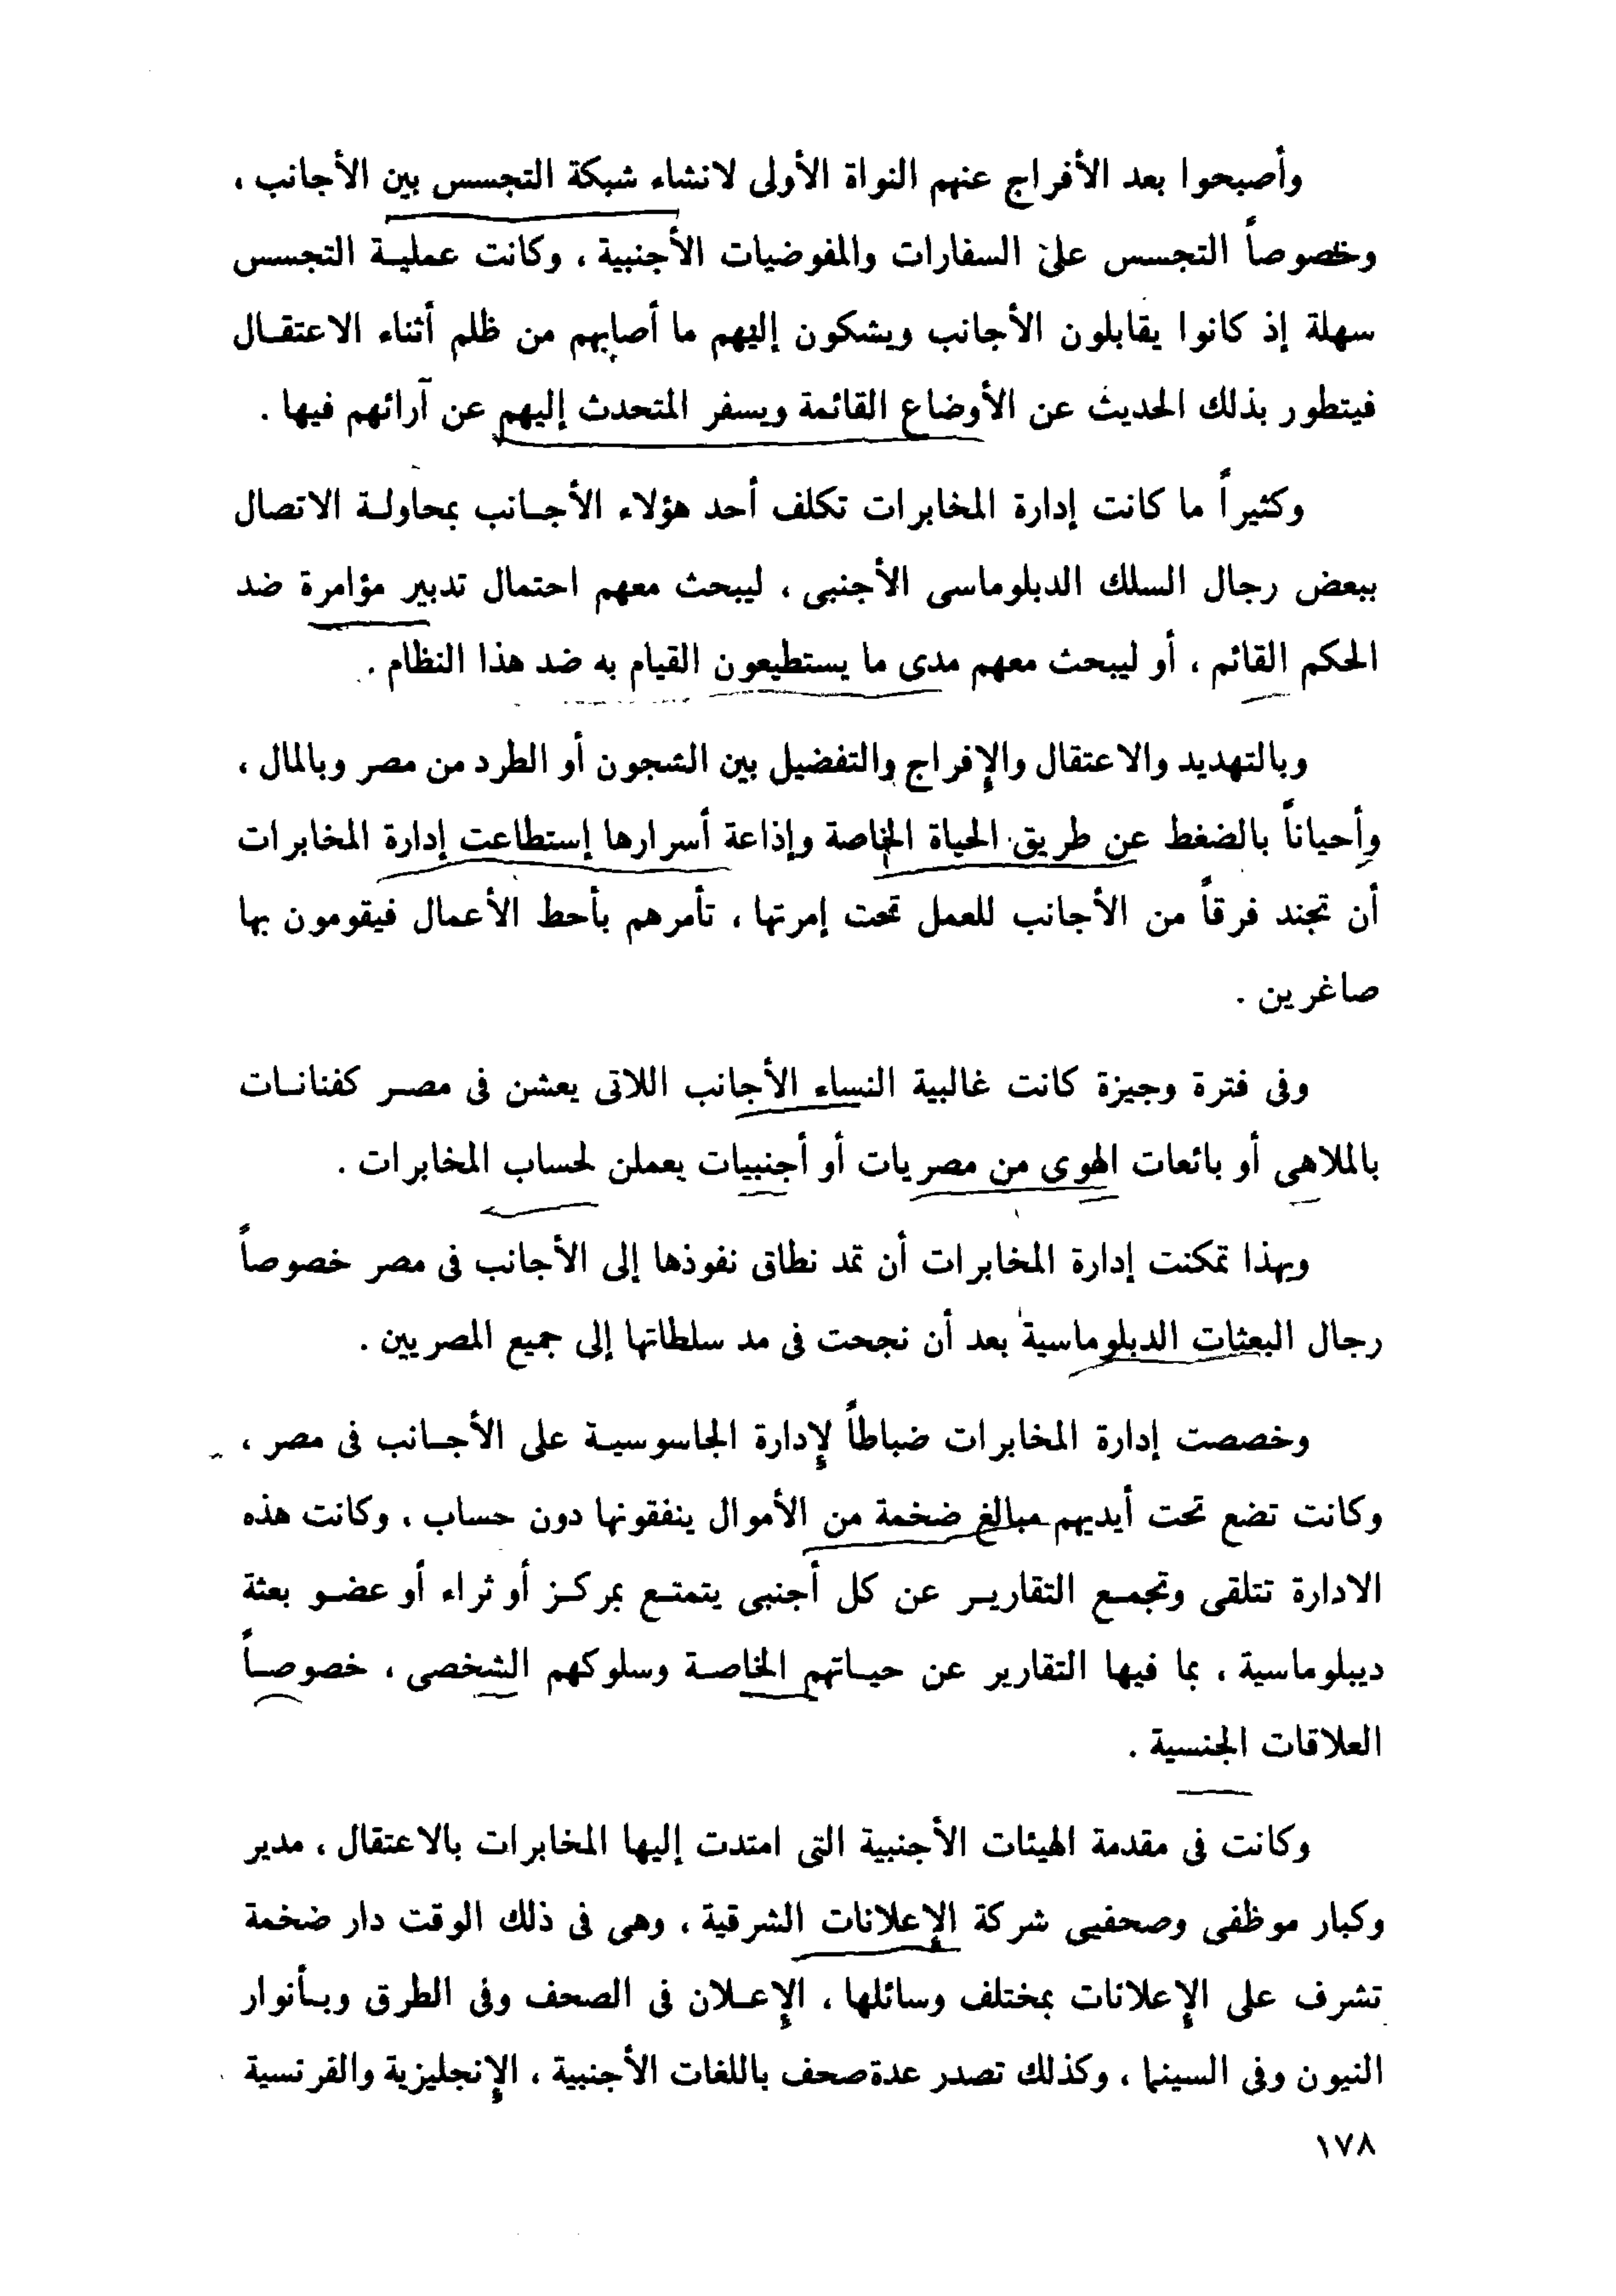 وأصبحوا بعد الأفراج عنهم النواة الأولى لانشاء شبكة التجسس بين الأجانب ،
وخصوصاً التجسس على السفارات والمفوضيات الأجنبية ، وكانت عمليـة التجسس
سهلة إذ كانوا يقابلون الأجانب ويشكون إليهم ما أصابهم من ظلم أثناء الاعتقـال
فيتطور بذلك الحديث عن الأوضاع القائمة ويسفر المتحدث إليهم عن آرائهم فيها .
وكثيراً ما كانت إدارة المخابرات تكلف أحد هؤلاء الأجـانب بمحاولـة الاتصال
ببعض رجال السلك الدبلوماسى الأجنبى ، ليبحث معهم احتمال تدبير مؤامرة ضد
الحكم القائم ، أو ليبحث معهم مدى ما يستطيعون القيام به ضد هذا النظام .
وبالتهديد والاعتقال والإفراج والتفضيل بين السجون أو الطرد من مصر وبالمال ،
وأحياناً بالضغط عن طريق الحياة الخاصة وإذاعة أسرارها إستطاعت إدارة المخابرات
أن تجند فرقاً من الأجانب للعمل تحت إمرتها ، تأمرهم بأحط الأعمال فيقومون بها
صاغرين .
وفى فترة وجيزة كانت غالبية النساء الأجانب اللاتى يعشن فى مصـر كفنانـات
بالملاهى أو بائعات الهوى من مصريات أو أجنبيات يعملن لحساب المخابرات .
وبهذا تمكنت إدارة المخابرات أن تمد نطاق نفوذها إلى الأجانب فى مصر خصوصاً
رجال البعثات الدبلوماسية بعد أن نجحت فى مد سلطاتها إلى جميع المصريين .
وخصصت إدارة المخابرات ضباطاً لإدارة الجاسوسيـة على الأجـانب فى مصر ،
وكانت تضع تحت أيديهم مبالغ ضخمة من الأموال ينفقونها دون حساب ، وكانت هذه
الادارة تتلقى وتجمـع التقاريـر عن كل أجنبى يتمتـع بمركـز أو ثراء أو عضـو بعثة
ديبلوماسية ، بما فيها التقارير عن حيـاتهم الخاصـة وسلوكهم الشخصى ، خصوصـاً
العلاقات الجنسية .
وكانت فى مقدمة الهيئات الأجنبية التى امتدت إليها المخابرات بالاعتقال ، مدير
وكبار موظفى وصحفيى شركة الإعلانات الشرقية ، وهى فى ذلك الوقت دار ضخمة
تشرف على الإعلانات بمختلف وسائلها ، الإعـلان فى الصحف وفى الطرق وبـأنوار
النيون وفى السينما ، وكذلك تصدر عدة صحف باللغات الأجنبية ، الإنجليزية والفرنسية
١٧٨